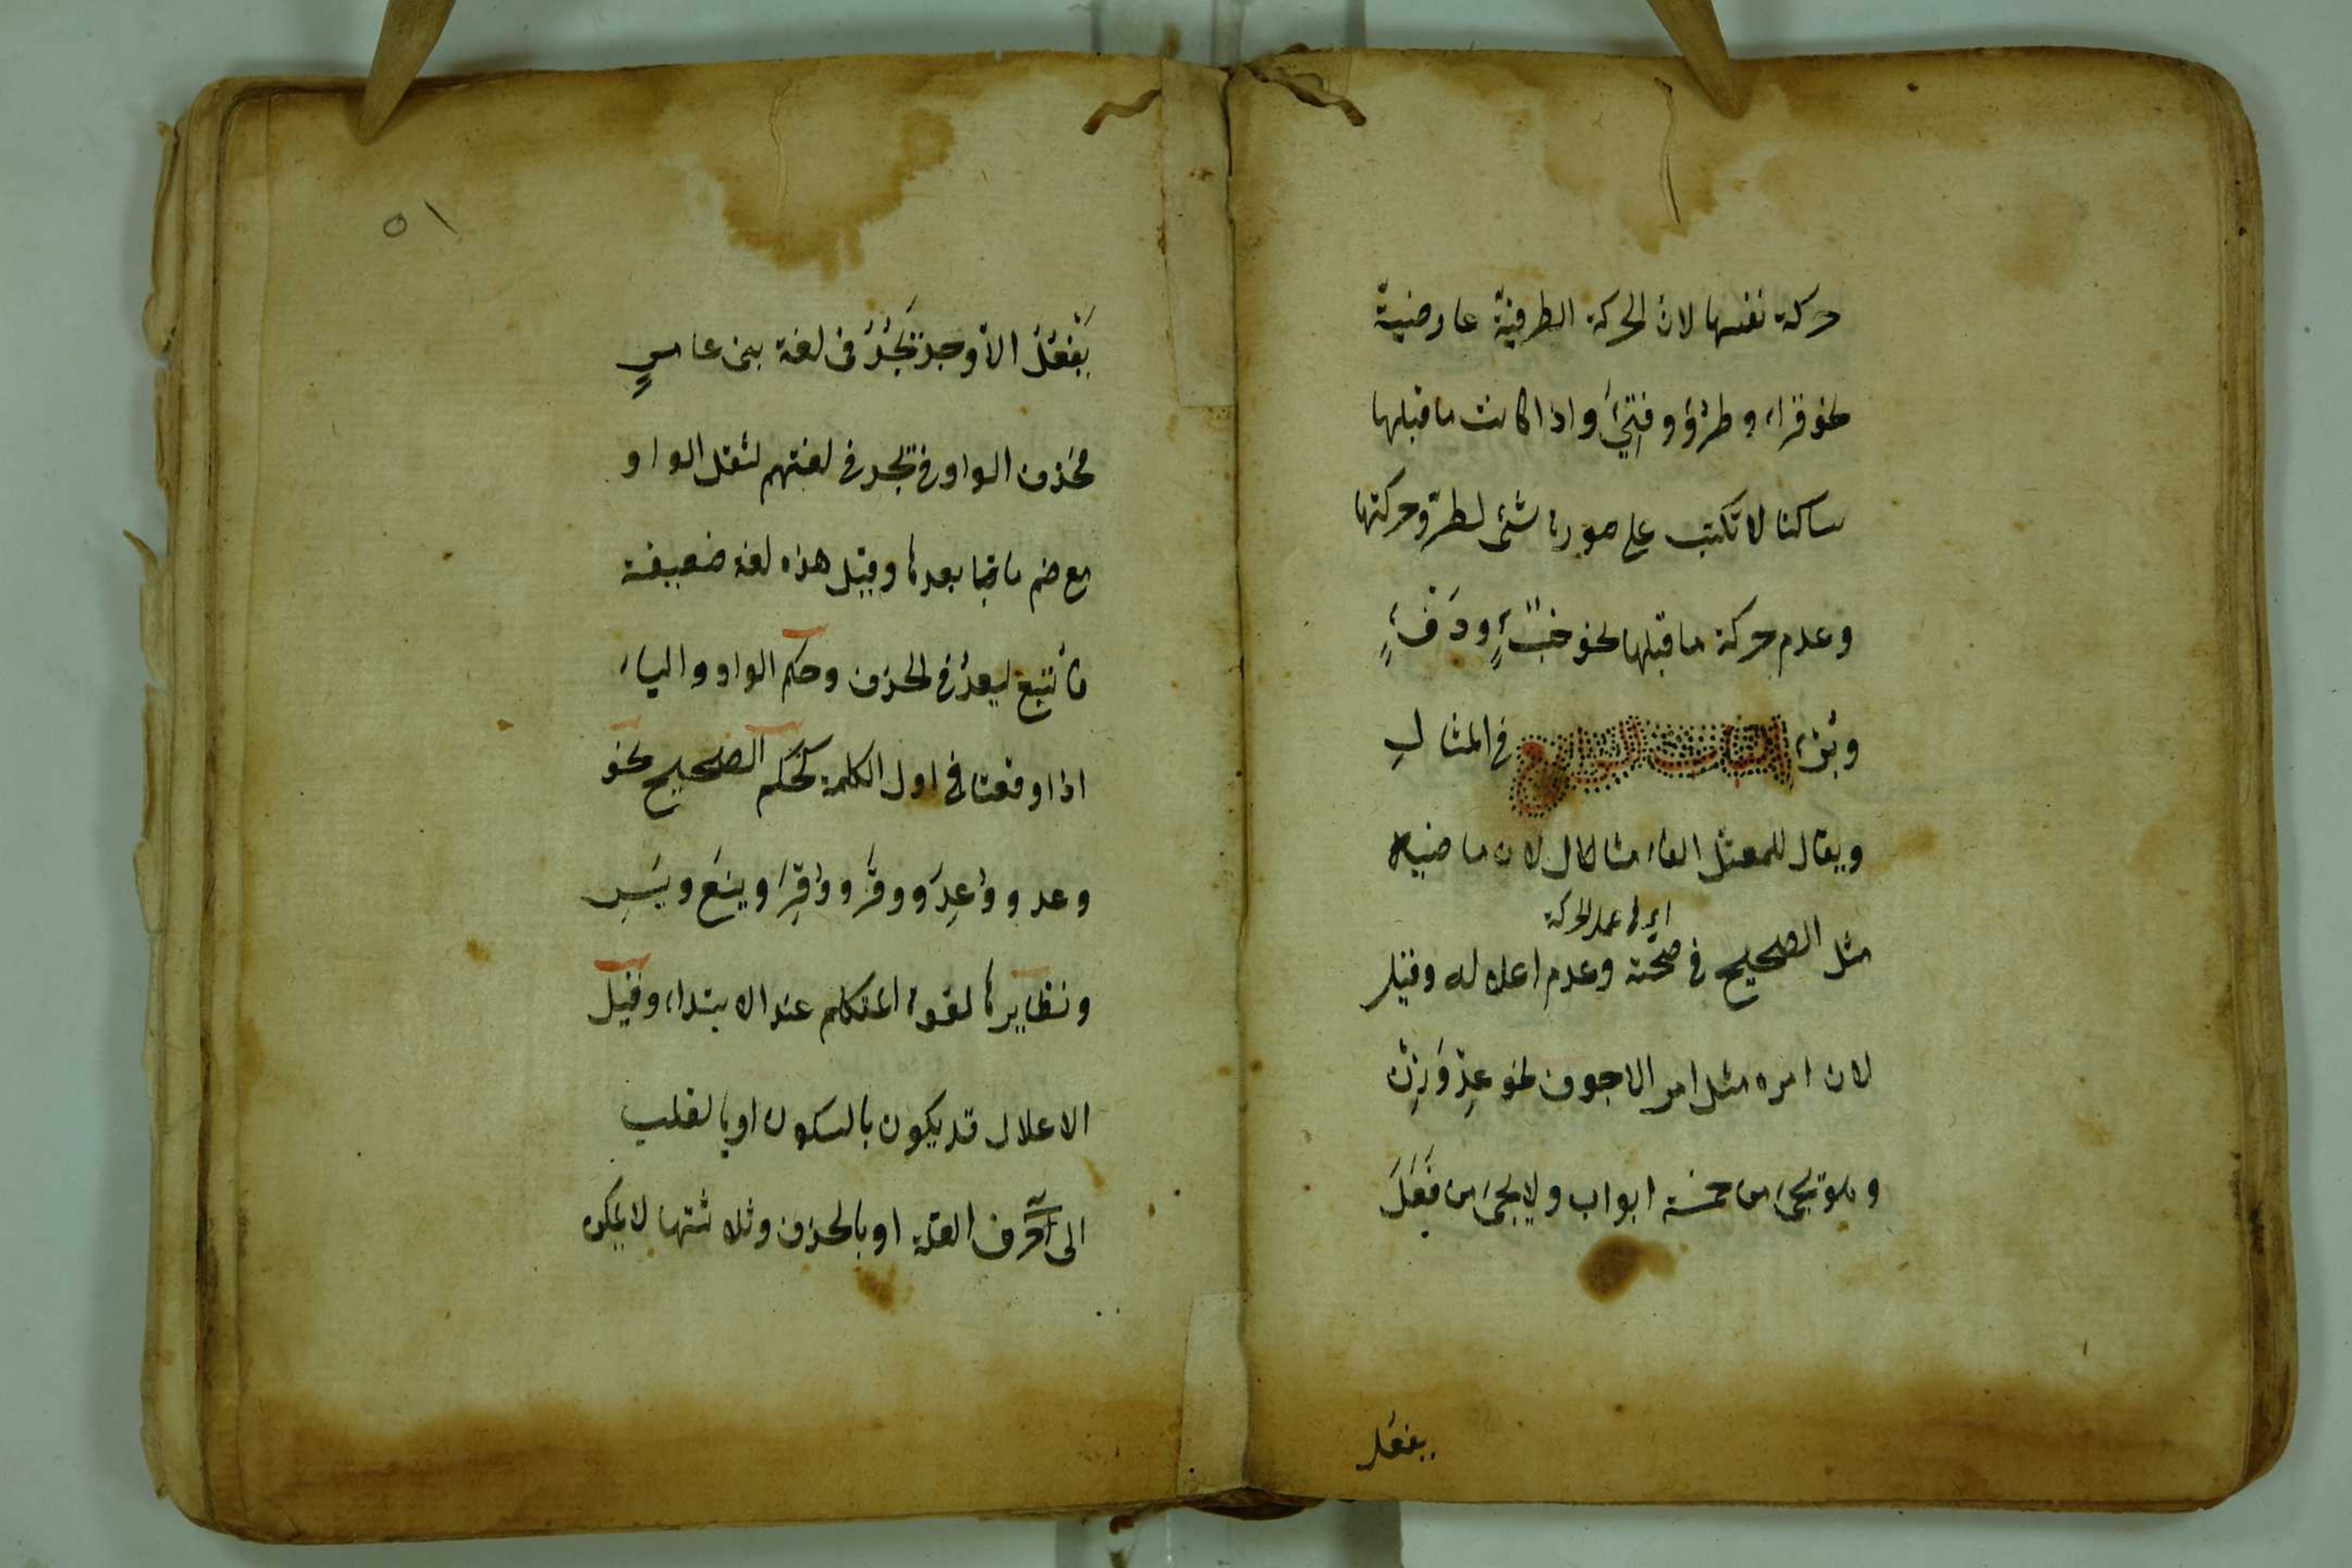 حركة نفسها لان الحركة الطرفية عارضية
نحو قراء وطرؤ وفتئ واذا كانت ما قبلها
ساكنا لا تكتب على صورة شئ لطرو حركتها
وعدم حركة ما قبلها نحو خبْءٍ ودفْءٍ
وبرء الباب الرابع فى المثال
ويقال للمعتل الفاء مثالا لان ماضيه
اى فى عمل الحركة
مثل الصحيح فى صحته وعدم اعلاله وقيل
لان امره مثل امر الاجوف نحو عِدْ وَزِنْ
وهو يجئ من خمسة ابواب ولا يجئ من فَعَلَ
يفعل
٥١
يَفْعُلُ الا وجد يَجُدُ فى لغة بنى عامرٍ
فحذف الواو فى يجد فى لغتهم لثقل الواو
مع ضم ما بعدها وقيل هذه لغة ضعيفة
فأتبع ليعد فى الحذف وحكم الواو والياء
اذا وقعتا فى اول الكلمة كحكم الصحيح نحو
وعد ووُعِدَ ووقَّر ووُقِرَ وينَع ويسَر
ونظايرها لقوة المتكلم عند الابتداء وقيل
الاعلال قد يكون بالسكون او بالقلب
الى حرف العلة او بالحذف وثلاثتها لا يمكن